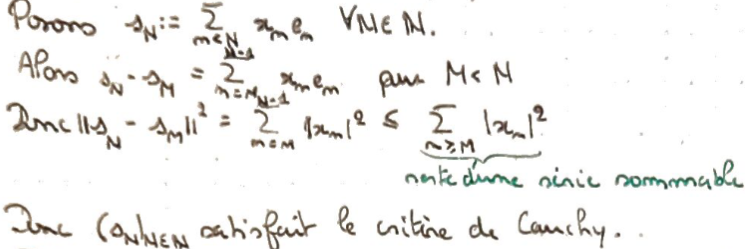 Posons s_N := ∑_{n<N} x_n e_n ∀N∈ℕ.
Alors s_N - s_M = ∑_{n=M}^{N-1} x_n e_n pour M<N
Donc ||s_N - s_M||² = ∑_{n=M}^{N-1} |x_n|² ≤ ∑_{n≥M} |x_n|²
reste d'une série sommable
Donc (s_N)_{N∈ℕ} satisfait le critère de Cauchy.